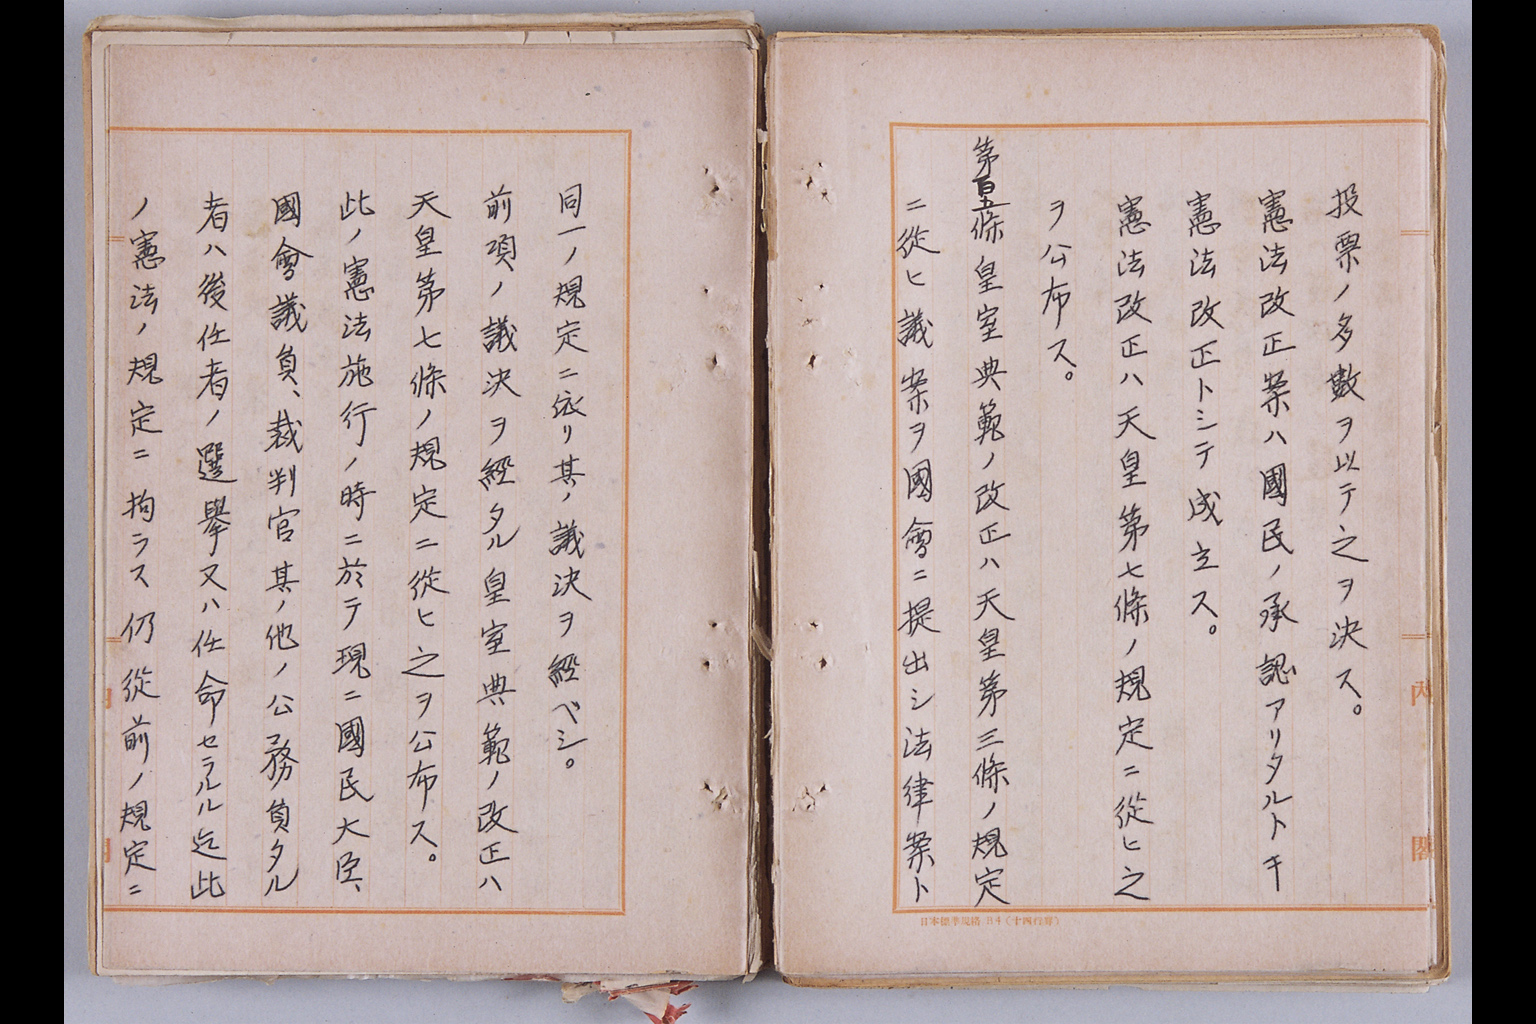 投票ノ多數ヲ以テ之ヲ決ス。
憲法改正案ハ國民ノ承認アリタルトキ
憲法改正トシテ成立ス。
憲法改正ハ天皇第七條ノ規定ニ從ヒ之
ヲ公布ス。
第百五條 皇室典範ノ改正ハ天皇第三條ノ規定
ニ從ヒ議案ヲ國會ニ提出シ法律案ト
內
閣
日本標準規格 B4 (十四行罫)
同一ノ規定ニ依リ其ノ議決ヲ經ベシ。
前項ノ議決ヲ經タル皇室典範ノ改正ハ
天皇第七條ノ規定ニ從ヒ之ヲ公布ス。
此ノ憲法施行ノ時ニ於テ現ニ國民大臣、
國會議員、裁判官其ノ他ノ公務員タル
者ハ後任者ノ選擧又ハ任命セラルル迄此
ノ憲法ノ規定ニ拘ラス仍從前ノ規定ニ